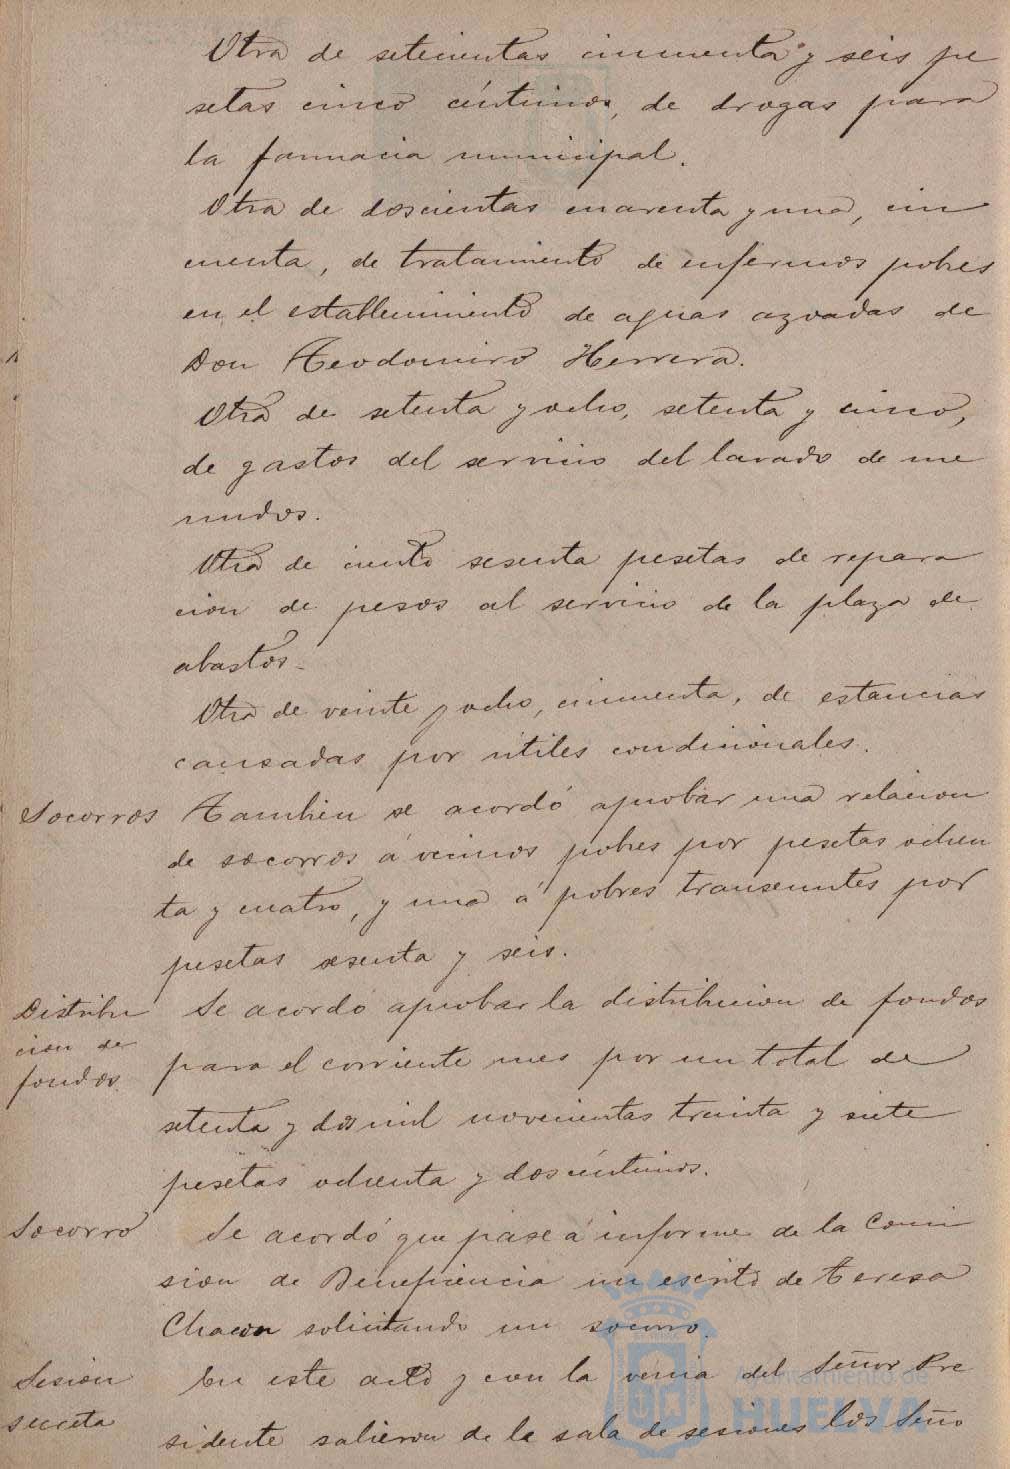 Otra de setecientas cincuenta y seis pe
setas cinco céntimos, de drogas para
la farmacia municipal.
Otra de doscientas cuarenta y una, cin
cuenta, de tratamiento de enfermos pobres
en el establecimiento de aguas azoadas de
Don Teodomiro Herrera.
Otra de setenta y ocho, setenta y cinco,
de gastos del servicio del lavado de me
nudos.
Otra de ciento sesenta pesetas de repara
cion de pesos al servicio de la plaza de
abastos.
Otra de veinte y ocho, cincuenta, de estancias
causadas por útiles condicionales.
Socorros Tambien se acordó aprobar una relacion
de socorros á vecinos pobres por pesetas ochen
ta y cuatro, y una á pobres transeuntes por
pesetas sesenta y seis.
Distribu Se acordó aprobar la distribucion de fondos
cion de
para el corriente mes por un total de
fondos.
setenta y dos mil novecientas treinta y siete
pesetas ochenta y dos céntimos.
Socorro Se acordó que pase á informe de la Comi
sion de Beneficencia un escrito de Teresa
Chacon solicitando un socorro.
Sesion En este acto y con la venia del Señor Pre
secreta sidente salieron de la sala de sesiones los Seño
Ayuntamiento de
HUELVA